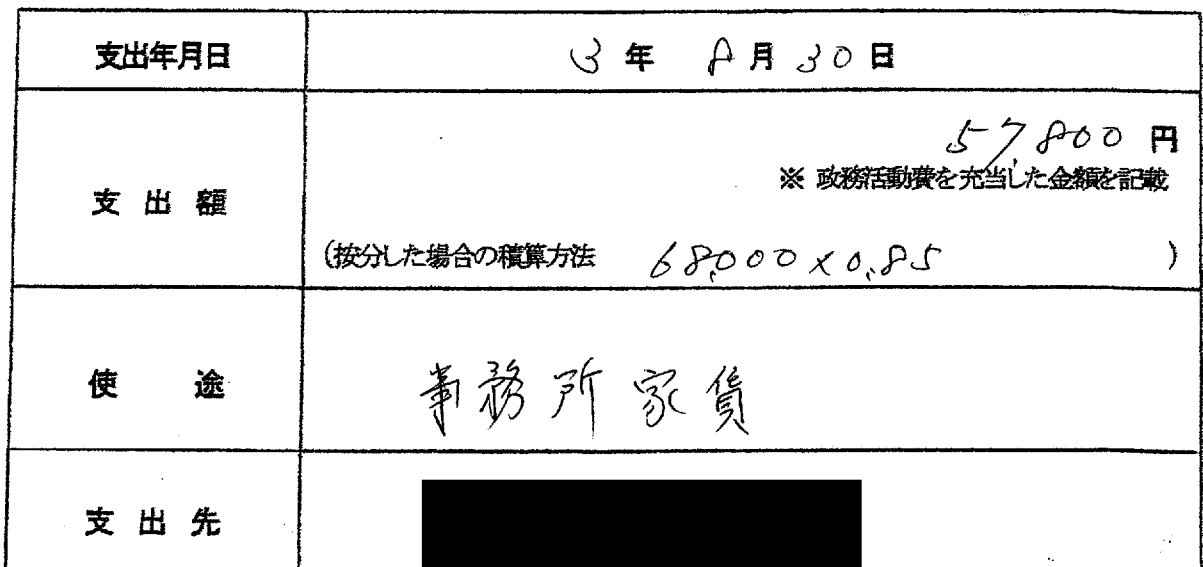 支出年月日 3年 8月30日
57,800円
※ 政務活動費を充当した金額を記載
支出額
(按分した場合の積算方法 68,000×0.85 )
使途 事務所家賃
支出先